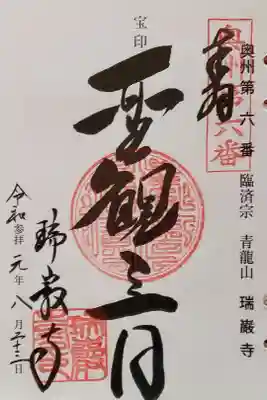 奥州第六番 臨済宗 青龍山 瑞巖寺
奥州第六番
奉拝
宝印
聖観世音
瑞巌寺
令和元年八月二十三日
参拝